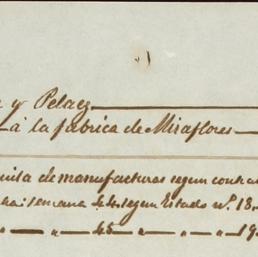 y Pelaez
á la fabrica de Miraflores
de manufacturas segun contra
semana segun Estado nº. 18.
" " 45 " " " 19